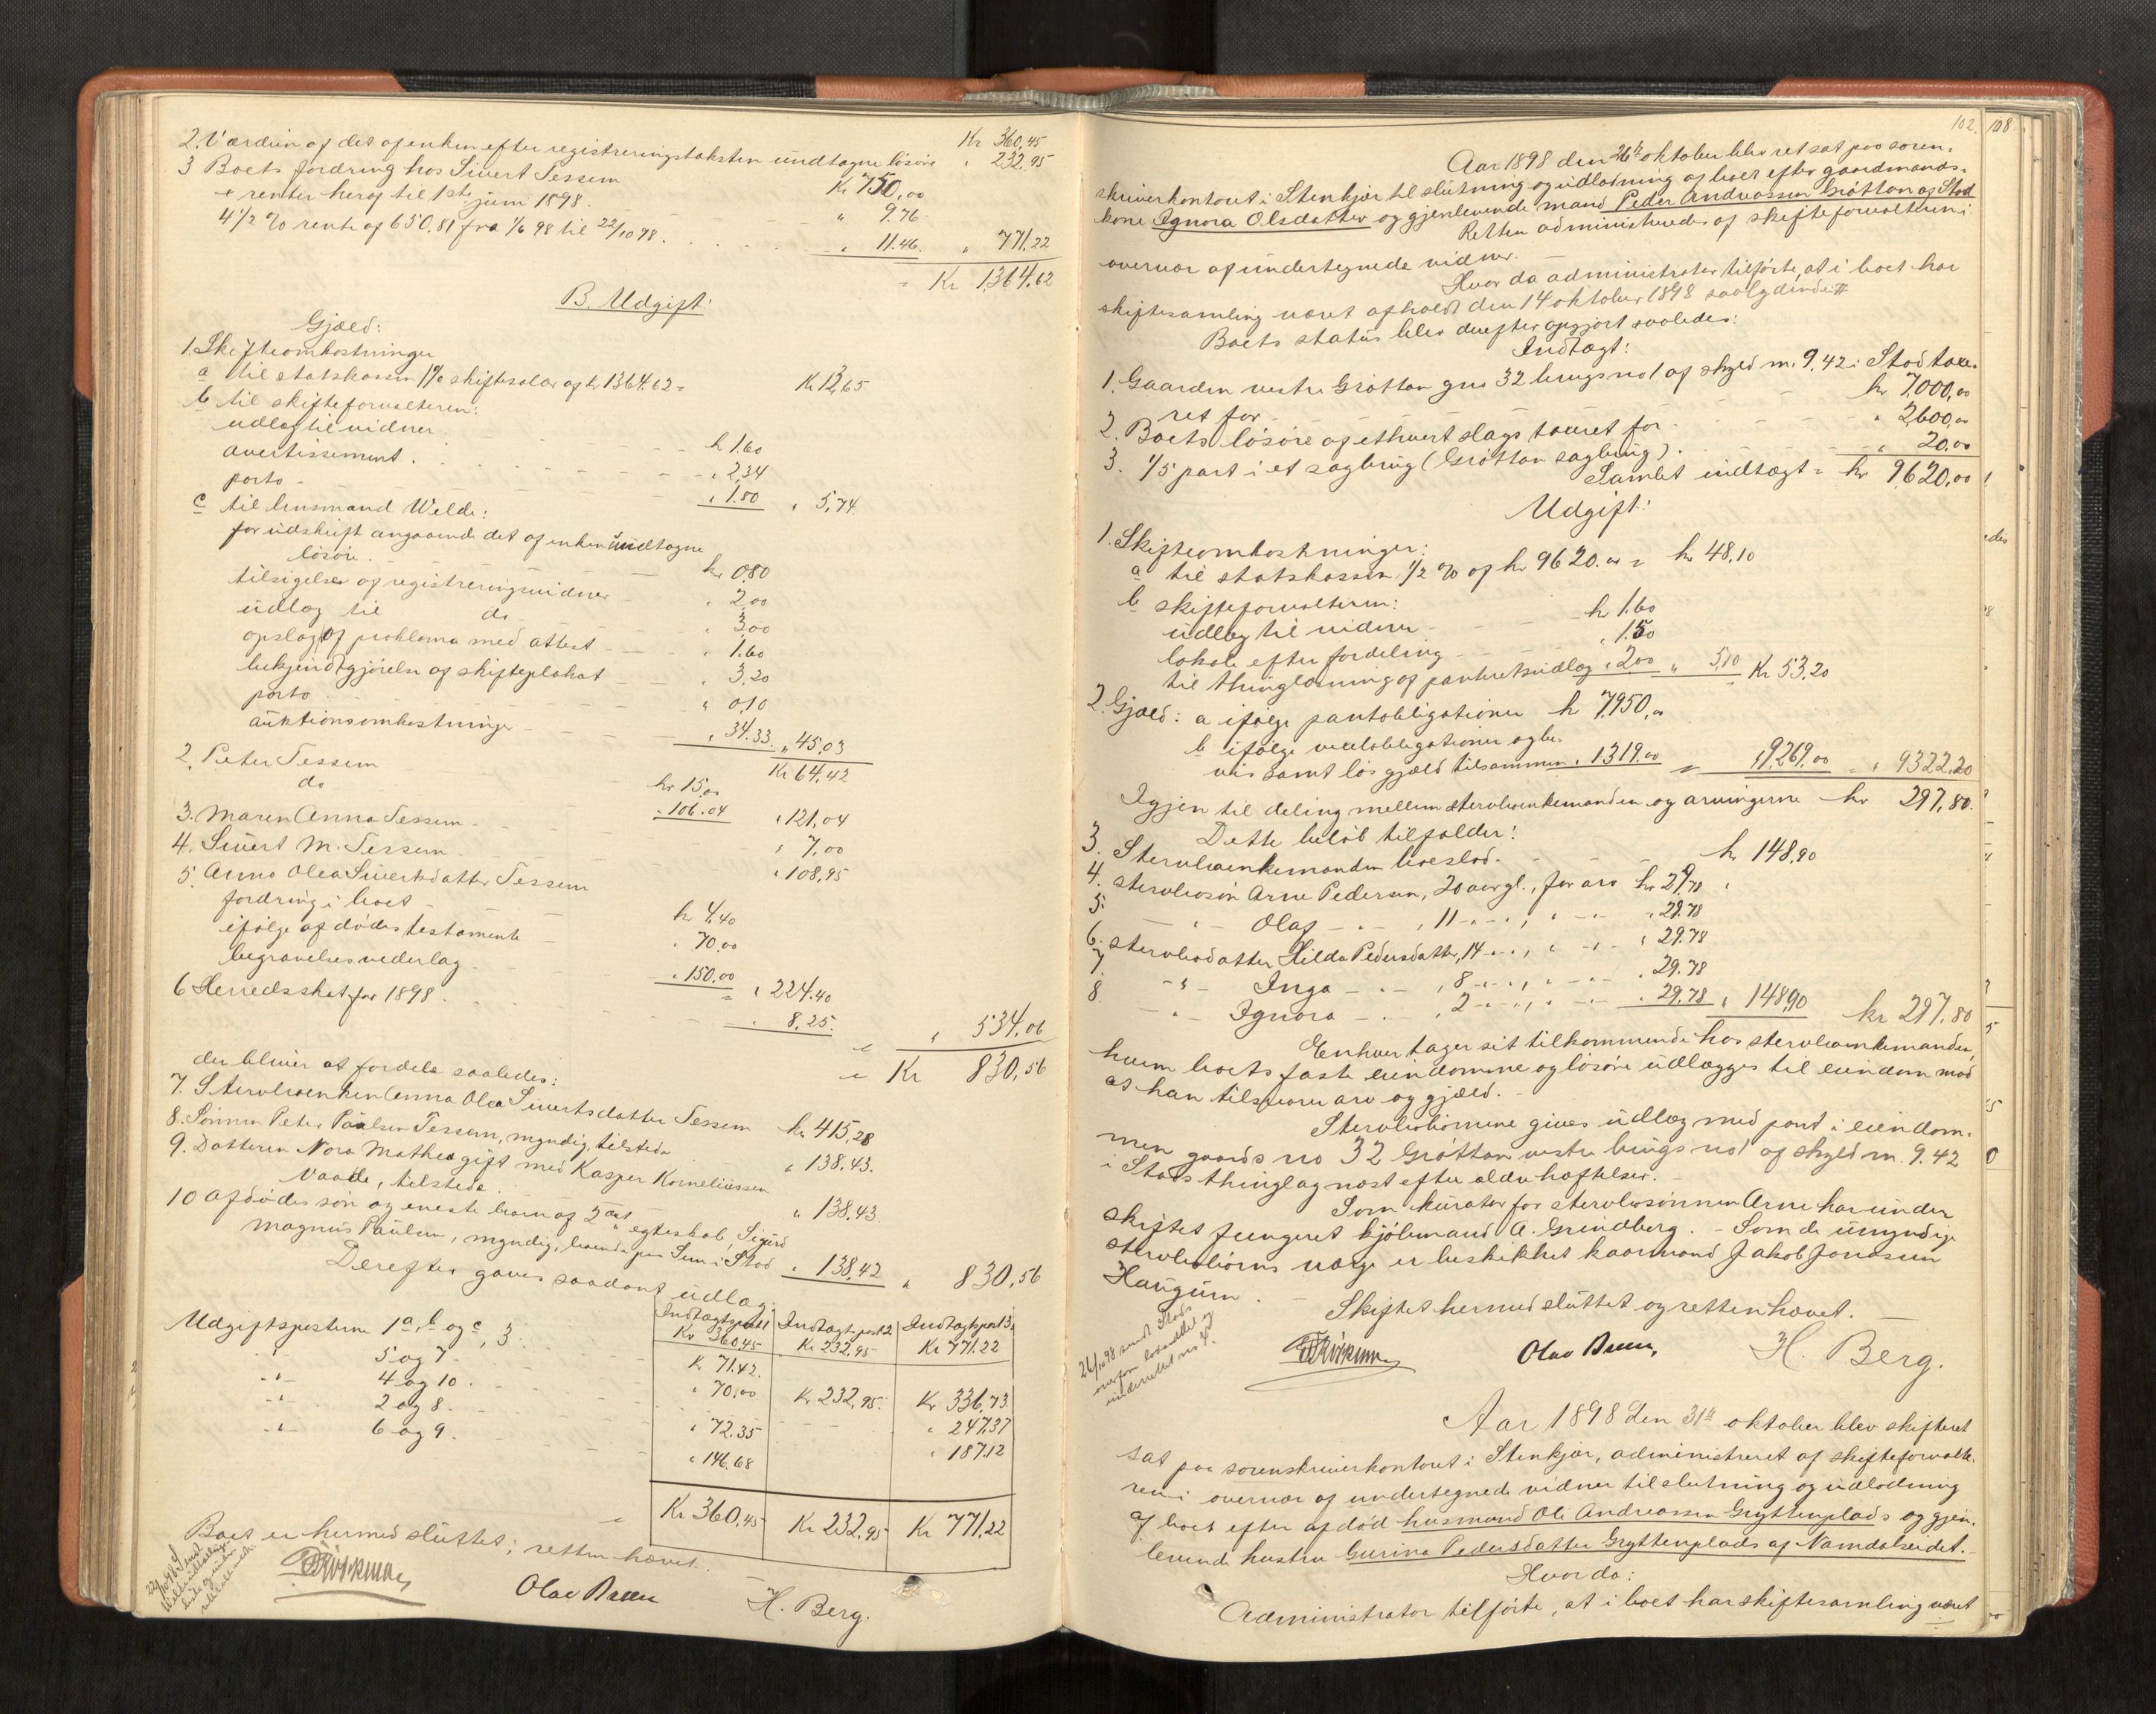 Kr 360,45
2. Værdien af det af enken efter registreringstaksten undtagne løsøre " 232,95
3 Boets fordring hos Sivert Tessem Kr 750,00
+ renter heraf til 1ste juni 1898. " 9.76
4 1/2 % rente af 650.81 fra 1/6 98 til 22/10 98. " 11.46. " 771,22
= Kr 1364,62
B. Udgift:
Gjæld:
1. Skifteomkostninger
a til statskassen 1% skiftesalær af kr 1364.62 = Kr 13,65
b til skifteforvalteren:
udlæg til vidner kr 1.60
avertissement. " 2,34
porto " 1.80 " 5,74
c til lensmand Welde:
for udskrift angaaende det af enken undtagne
løsøre. kr 0,80
tilsigelse af registreringsvidner " 2,00
udlæg til do " 3,00
opslag af proklama med attest " 1.60
bekjendtgjørelse af skifteplakat " 3,20
porto " 0,10
auktionsomkostninger " 34.33. " 45,03
Kr 64,42
2. Peter Tessem kr 15,00
do " 106.04 " 121,04
3. Maren Anna Tessem " 7,00
4. Sivert M. Tessem " 108,95
5. Anna Olea Sivertsdatter Tessem
fordring i boet kr 4,40
ifølge afdødes testamente " 70,00
begravelsesvederlag " 150,00 = " 224.40
6 Herredsskat for 1898. " 8,25. " 534,06
= Kr 830,56
der bliver at fordele saaledes:
7. Stervboenken Anna Olea Sivertsdatter Tessem kr 415,28
8. Sønnen Peter Paulsen Tessem, myndig, tilstede " 138,43.
9. Datteren Nora Mathea gift med Kasper Korneliussen
Vaade, tilstede. " 138,43
10 Afdødes søn og eneste barn af 2det egteskab, Sigurd
Magnus Paulsen, myndig, boende paa Sem i Stod " 138,42 " 830,56
Derefter gaves saadant udlæg:
Indtægtspost 1 Indtægtspost 2 Indtægtspost 3
Kr 360,45 Kr 232,95 Kr 771,22
Udgiftsposterne 1 a, b og c, 3. K 71,42.
" 5 og 7 " 70,00 Kr 232,95. Kr 336,73
" 4 og 10. " 247,37
" 2 og 8. " 72.35 " 187,12
" 6 og 9. " 146,68
= Kr 360,45 Kr 232,95 Kr 771,22
Boet er hermed sluttet; retten hævet.
Olav Benum H. Berg.
102. 108.
Aar 1898 den 26de oktober blev ret sat paa soren-
skriverkontoret i Stenkjær til slutning og udlodning af boet efter gaardmands-
kone Ignora Olsdatter og gjenlevende mand Peder Andreassen Grøttan af Stod
Retten administreredes af skifteforvalteren i
overvær af undertegnede vidner.
Hvor da administrator tilførte, at i boet har
skiftesamling været afholdt den 14 oktober 1898 saalydende: #
Boets status blev derefter opgjort saaledes:
Indtægt:
1. Gaarden vestre Grøttan gno 32 brugsno 1 af skyld m. 9.42 i Stod taxe-
ret for kr 7,000,00
2. Boets løsøre af ethvert slags taxeret for " 2,600,00
3. 1/5 part i et sagbrug (Grøttan sagbrug). " 20,00
Samlet indtægt = kr 9620,00
Udgift:
1. Skifteomkostninger:
a til statskassen 1/2 % af kr 9620.00 = kr 48,10
b skifteforvalteren:
udlæg til vidner kr 1.60
lokale efter fordeling " 1.50
til thinglæsning af panteretsudlæg " 2.00 " 5,10 Kr 53,20
2. Gjæld: a ifølge pantobligationer kr 7,950,00
b ifølge vexelobligationer og be-
vis samt løs gjæld tilsammen " 1319.00 = " 9,269,00 = " 9322,20
Igjen til deling mellem stervboenkemanden og arvingerne kr 297,80.
Dette beløb tilfalder:
3. Stervboenkemanden boeslod. kr 148,90
4. stervbosøn Arne Pedersen, 20 aar gl., for arv kr 29,78
5. " Olaf " , 11 " " , " " " 29.78
6. stervbodatter Hilda Pedersdatter, 14 " " , " " " 29.78
7. " Inga " , 8 " " , " " " 29.78
8. " Ignora " , 2 " " , " " " 29,78 " 148,90 kr 297,80
Enhver tager sit tilkommende hos stervboenkemanden,
hvem boets faste eiendomme og løsøre udlægges til eiendom mod
at han tilsvarer arv og gjæld.
Stervbobørnene gives udlæg med pant i eiendom-
men gaards no 32 Grøttan vestre brugs no 1 af skyld m. 9.42
i Stods thinglag næst efter ældre hæftelser.
Som kurator for stervbosønnen Arne har under
skiftet fungeret kjøbmand A. Grindberg. - Som de umyndige
stervbobørns værge er beskikket kaarmand Jakob Jonassen
Haugum.
Skiftet hermed sluttet og retten hævet.
Olav Benum, H. Berg.
Aar 1898 den 31te oktober blev skifteret
sat paa sorenskriverkontoret i Stenkjær, administreret af skifteforvalte-
ren i overvær af undertegnede vidner til slutning og udlodning
af boet efter afdød husmand Ole Andreassen Gryttenplads og gjen-
levende hustru Gurina Pedersdatter Gryttenplads af Namdalseidet.
Hvor da:
Administrator tilførte, at i boet har skiftesamling været